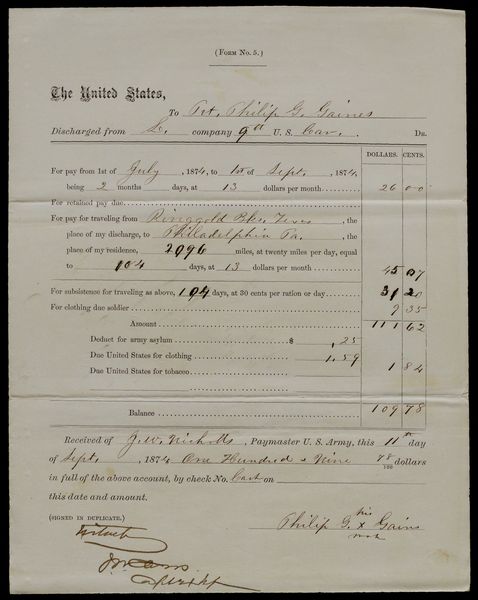 (FORM No. 5.)
The United States,
To Pvt. Philip G. Gaines
Discharged from L. company 9th U. S. Cav. DR.
DOLLARS. CENTS.
For pay from 1st of July, 1874, to 1st of Sept., 1874,
being 2 months days, at 13 dollars per month 26 00
For retained pay due
For pay for traveling from Ringgold Bks, Texas, the
place of my discharge, to Philadelphia Pa., the
place of my residence, 2096 miles, at twenty miles per day, equal
to 104 days, at 13 dollars per month 45 07
For subsistence for traveling as above, 104 days, at 30 cents per ration or day 31 20
For clothing due soldier 9 35
Amount 111 62
Deduct for army asylum $ , 25
Due United States for clothing 1.59
Due United States for tobacco 1 84
Balance 109 78
Received of J. W. Nicholls, Paymaster U. S. Army, this 11th day
of Sept., 1874 One Hundred & Nine 78/100 dollars
in full of the above account, by check No. Cash on
this date and amount.
(SIGNED IN DUPLICATE.)
his
Philip G. x Gains
mark